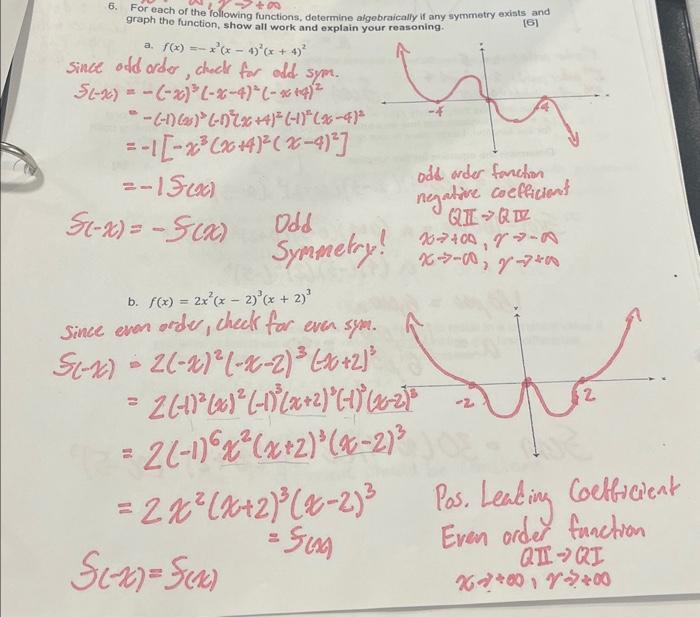 → +∞
6. For each of the following functions, determine algebraically if any symmetry exists and
graph the function, show all work and explain your reasoning. [6]
a. f(x) = − x³(x − 4)²(x + 4)²
Since odd order, check for odd sym.
f(-x) = -(-x)³(-x-4)²(-x+4)²
= -(-1)(x)³(-1)²(x+4)²(-1)²(x-4)²
= -1[-x³(x+4)²(x-4)²]
= -1f(x)
f(-x) = -f(x) Odd
Symmetry!
-4
4
odd order function
negative coefficient
QII → QIV
x→+∞, y→-∞
x→-∞, y→+∞
b. f(x) = 2x²(x − 2)³(x + 2)³
Since even order, check for even sym.
f(-x) = 2(-x)²(-x-2)³(-x+2)³
= 2(-1)²(x)²(-1)³(x+2)³(-1)³(x-2)³
= 2(-1)⁶x²(x+2)³(x-2)³
= 2x²(x+2)³(x-2)³
= f(x)
f(-x) = f(x)
-2
2
x
Pos. Leading Coefficient
Even order function
QII → QI
x→+∞, y→+∞